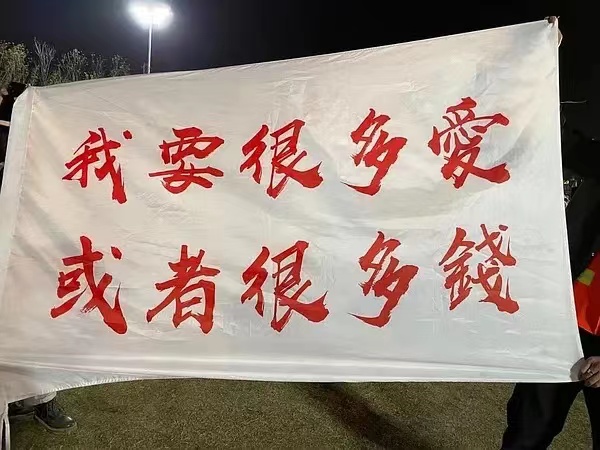 我要很多愛
或者很多錢